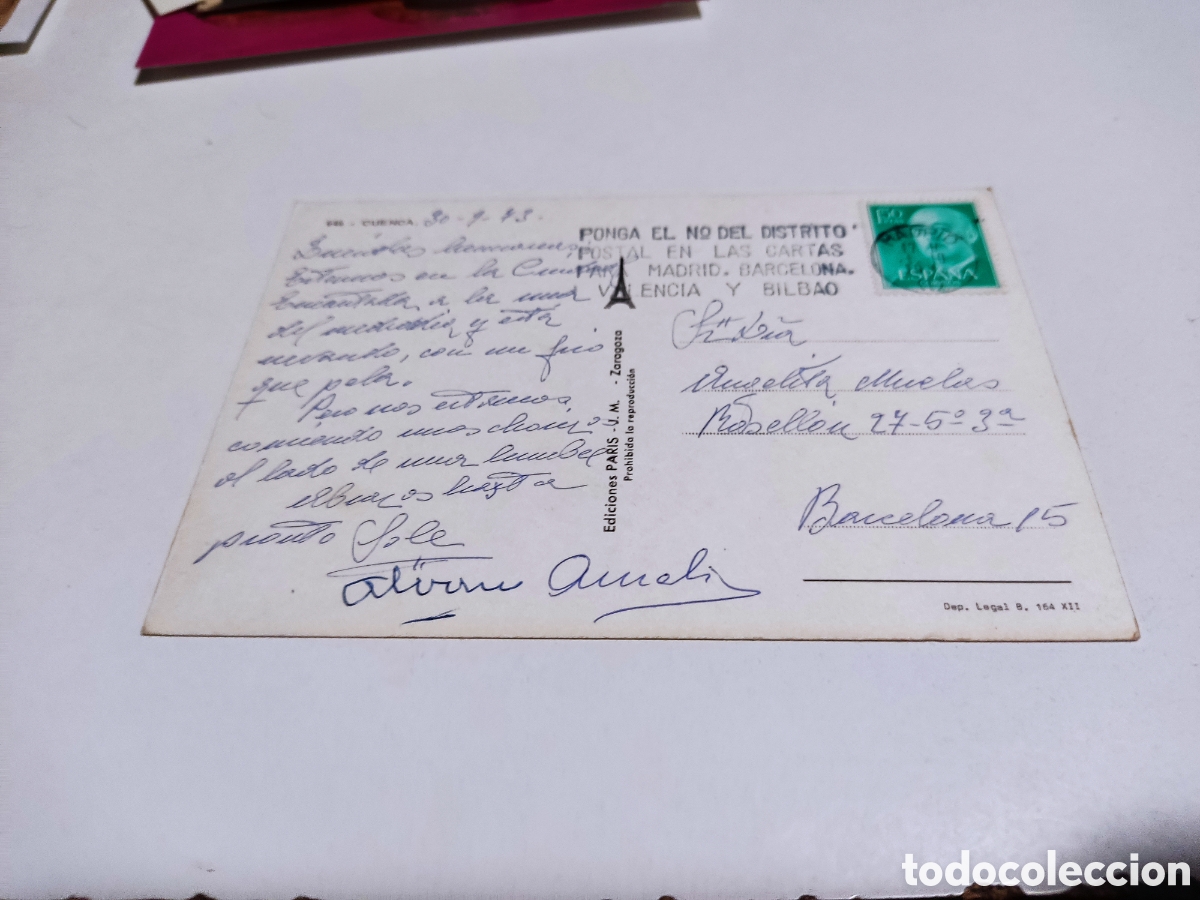 CUENCA. 30-9-73.
Queridas hermanas,
Estamos en la Ciudad
Encantada a la una
del mediodia y esta
nevando, con un frio
que pela.
Pero nos estamos
comiendo unas
al lado de una lumbre
Abrazos hasta
pronto Sole
Amalia
PONGA EL Nº DEL DISTRITO
POSTAL EN LAS CARTAS
PARA MADRID. BARCELONA.
VALENCIA Y BILBAO
ESPAÑA
Srta Dña
Angelita Muelas
Rosellón 27-5º 3ª
Barcelona 15
Ediciones PARIS - J. M. - Zaragoza
Prohibida la reproducción
Dep. Legal B. 164 XII
todocoleccion